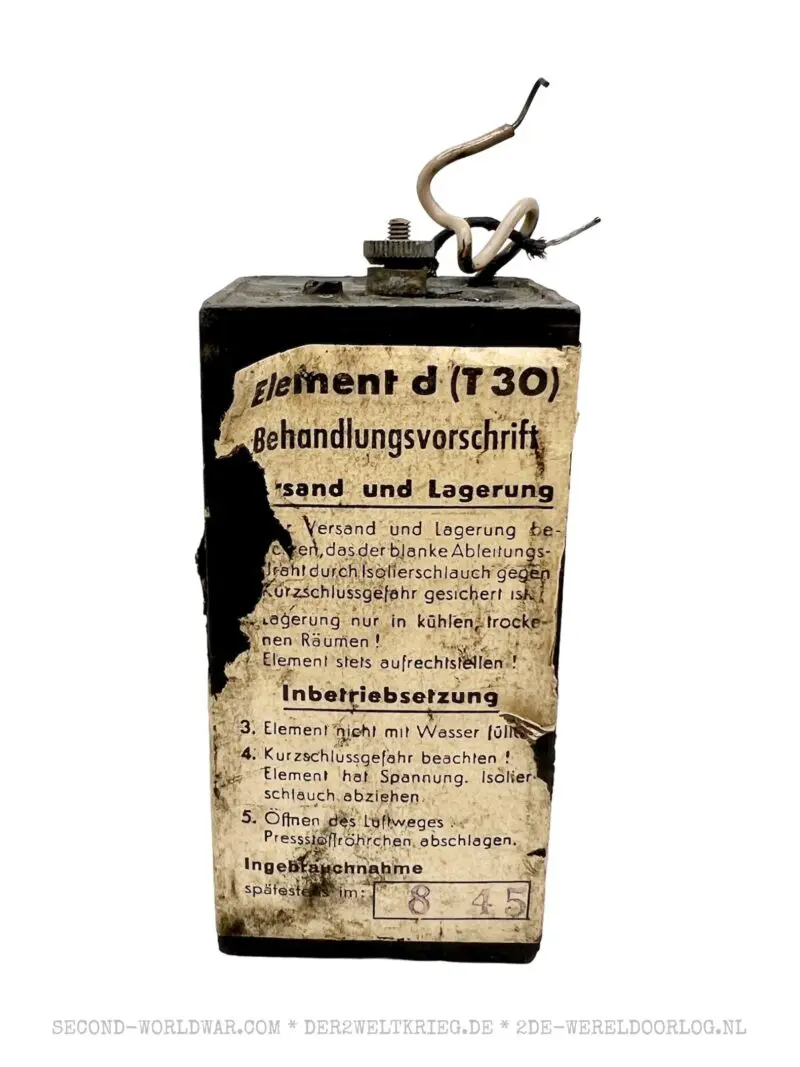 Element d (T 30)
Behandlungsvorschrift
rsand und Lagerung
Versand und Lagerung be-
ten, das der blanke Ableitungs-
draht durch Isolierschlauch gegen
Kurzschlussgefahr gesichert ist!
Lagerung nur in kühlen, trocke-
nen Räumen!
Element stets aufrechtstellen!
Inbetriebsetzung
3. Element nicht mit Wasser fülle
4. Kurzschlussgefahr beachten!
Element hat Spannung. Isolier-
schlauch abziehen.
5. Öffnen des Luftweges.
Pressstoffröhrchen abschlagen.
Ingebrauchnahme
spätestens im: 8 45
SECOND-WORLDWAR.COM * DER2WELTKRIEG.DE * 2DE-WERELDOORLOG.NL